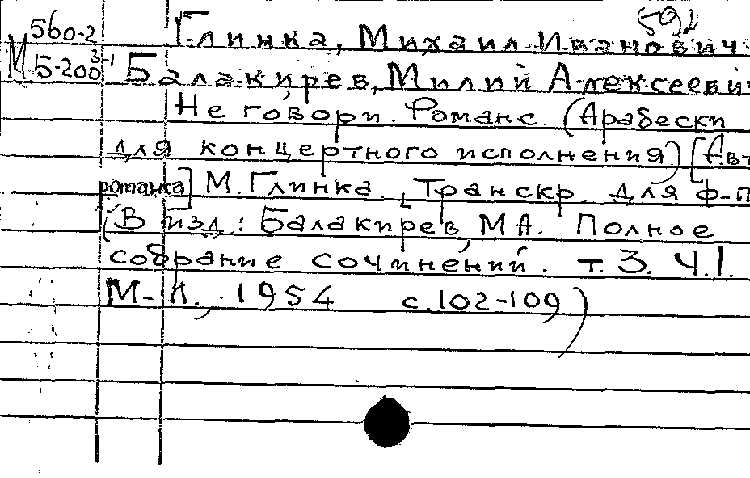 592
560-2 Глинка, Михаил Иванович.
М 5-200 3-1 Балакирев, Милий Алексеевич
Не говори. Романс. (Арабески
для концертного исполнения) [Авт
романса] М. Глинка. [Транскр. для ф-п
(В изд: Балакирев, М.А. Полное
собрание сочинений. т. 3. Ч. 1.
М-Л., 1954 с. 102-109)